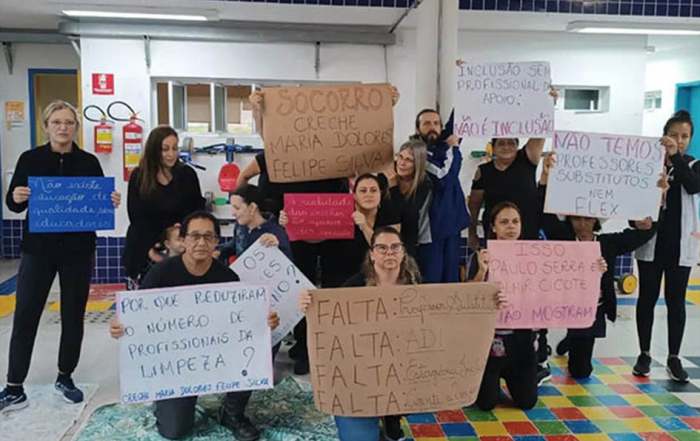 SOCORRO
CRECHE
MARIA DOLORES
FELIPE SILVA
INCLUSÃO SEM
PROFISSIONAL DE
APOIO:
NÃO É INCLUSÃO
NÃO TEMOS
PROFESSORES
SUBSTITUTOS
NEM
FLEX
Não existe
educação de
qualidade sem
educadores
ISSO
PAULO SERRA E
CICOTE
NÃO MOSTRAM
POR QUE REDUZIRAM
O NÚMERO DE
PROFISSIONAIS DA
LIMPEZA?
CRECHE MARIA DOLORES FELIPE SILVA
OS
FALTA:
FALTA: ADI
FALTA:
FALTA: